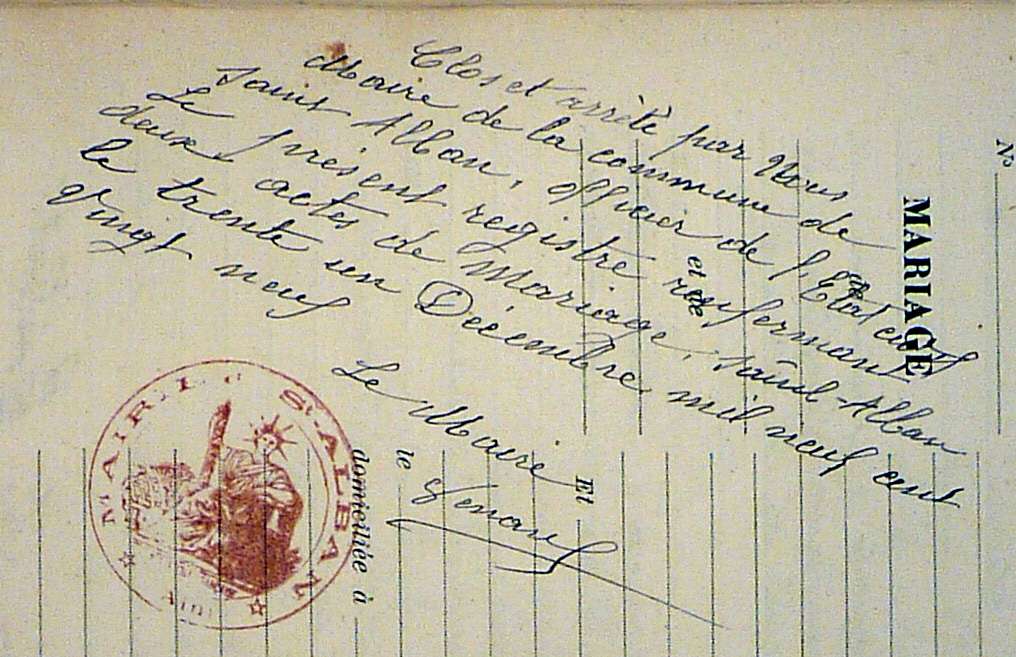 Clos et arrêté par Nous
Maire de la commune de
Saint Alban, officier de l'Etat civil
Le présent registre renfermant
deux actes de Mariage. Saint-Alban
le trente un Décembre mil neuf cent
Vingt neuf
Le Maire
MAIRIE St ALBAN
AIN
No
MARIAGE
et
Et
le
domiciliée à